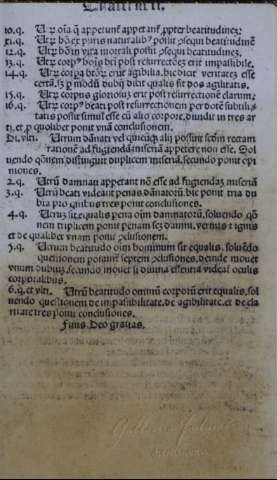 10.q. Utrum oīa q̄ appetunt̄ appetant̄ ꝓpter beatitudineȝ
11.q. Utrū hō ex puris naturalibꝰ possit ꝯsequi beatitudinē
12.q. Utrū hō in vita mortali possit ꝯsequi beatitudineȝ.
13.q. Utrū corpꝰ hoīs bti post resurrectionē erit impassibile.
14.q. Utrū corpa btōrȝ erūt agibilia, hic dicit veritateȝ esse
certā, sȝ ꝓ modū dubij dicit qualis sit dos agilitatis.
15.q. Utrū corpus gloriosuȝ erit post resurrectionē clarum.
16.q. Utrū corpꝰ beati post resurrectionem per dotē subtili-
tatis possit simul esse cū alio corpore, diuidit in tres ar-
ti. et ꝓ quolibet ponit vnā conclusionem.
Di. vlti. Utrum dānati vel
ratione ad fugiendā miseriā appetere non esse. Sol
uendo distinguit duplicem miseriā, secundo ponit opi
niones.
2.q. Utrū damnati appetant nō esse ad fugiendaȝ miseriā
3.q. Utrū beati videant penas dānatorū, hic ponit tria du
bia pro quibus tres ponit conclusiones.
4.q. Utrum sit equalis pena oīm damnatorū, soluendo
nem triplicem ponit penam sȝ damni, vermis et ignis
et de qualibet vnam ponit ꝯclusionem.
5.q. Utrum beatitudo oim hominum sit equalis, soluēdo
questionem ponunt septem ꝯclusiones, deinde mouet
vnum dubiuȝ, secundo mouet si diuina essentia videat̄ oculis
corporalibus.
6.q. et vlti. Utrū beatitudo omniū corporū erit equalis, sol
uendo questionem de impassibilitate, de agilitate, et de cla
ritate tres ponit conclusiones.
Finis Deo gratias.